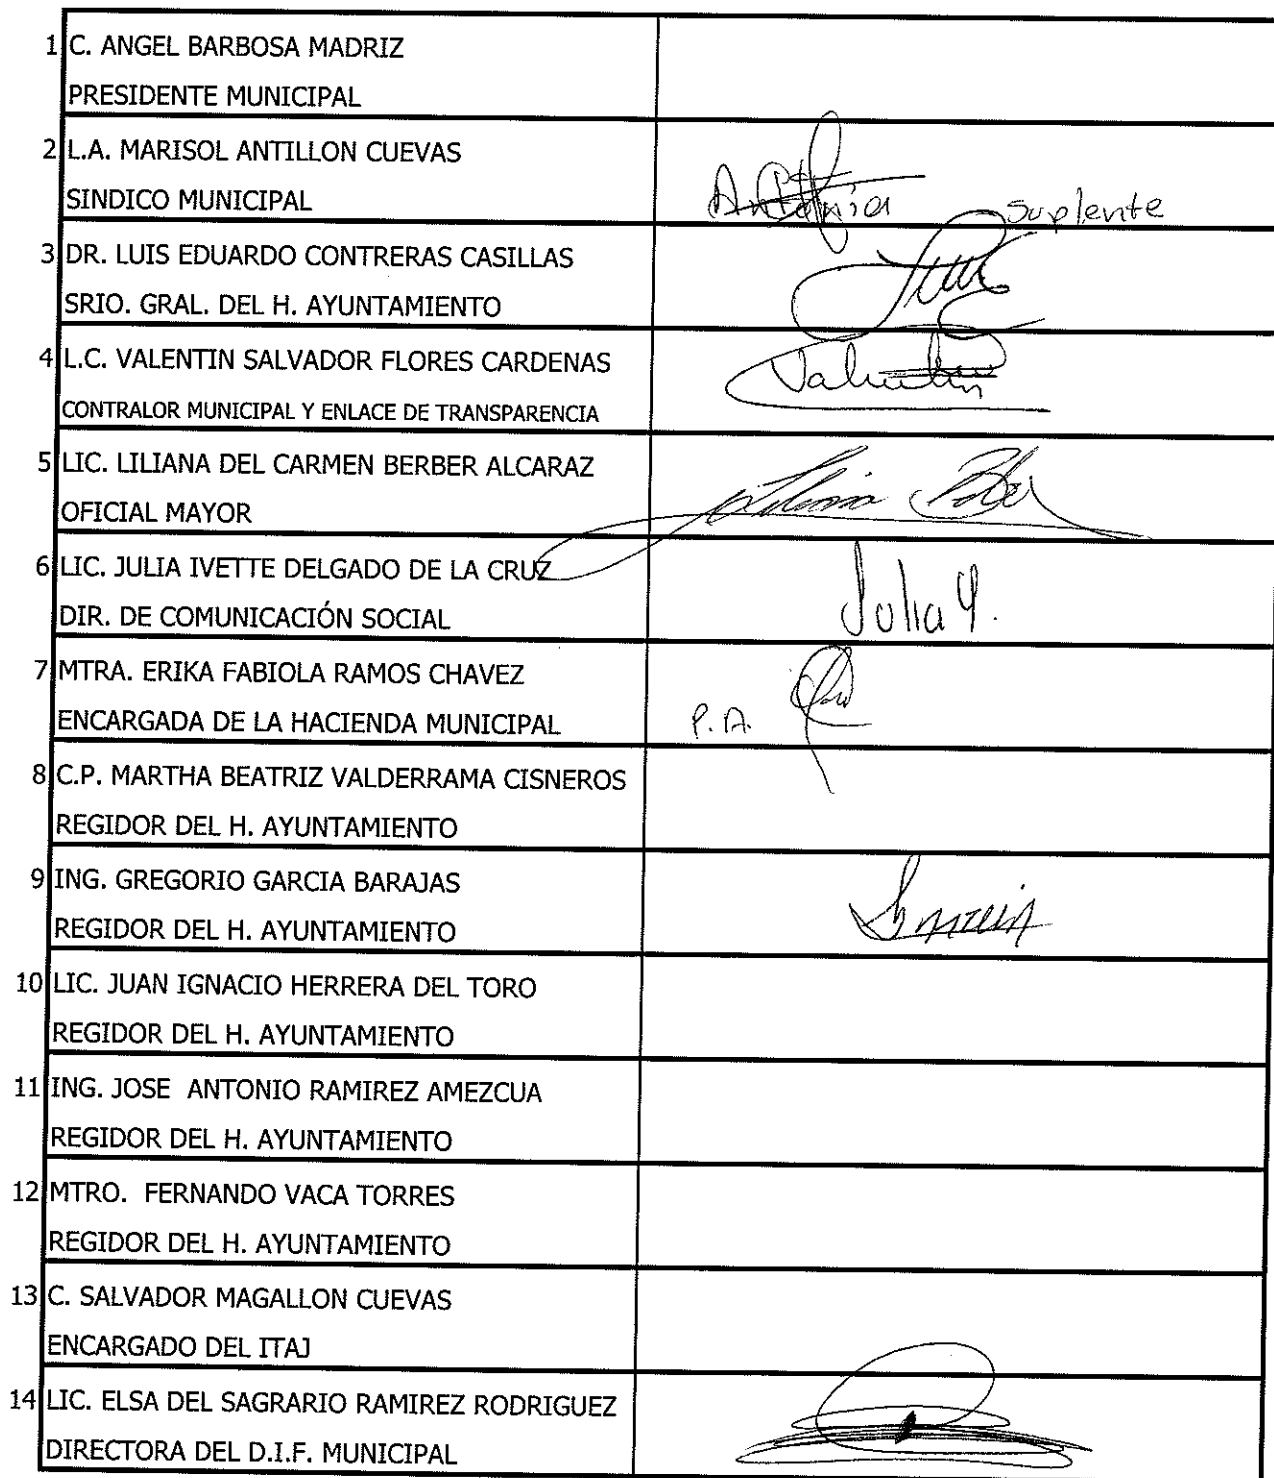 1 C. ANGEL BARBOSA MADRIZ
PRESIDENTE MUNICIPAL
2 L.A. MARISOL ANTILLON CUEVAS
SINDICO MUNICIPAL
Antonia Suplente
3 DR. LUIS EDUARDO CONTRERAS CASILLAS
SRIO. GRAL. DEL H. AYUNTAMIENTO
4 L.C. VALENTIN SALVADOR FLORES CARDENAS
Valentin
CONTRALOR MUNICIPAL Y ENLACE DE TRANSPARENCIA
5 LIC. LILIANA DEL CARMEN BERBER ALCARAZ
OFICIAL MAYOR
6 LIC. JULIA IVETTE DELGADO DE LA CRUZ
DIR. DE COMUNICACIÓN SOCIAL
Julia Y.
7 MTRA. ERIKA FABIOLA RAMOS CHAVEZ
ENCARGADA DE LA HACIENDA MUNICIPAL
P.A.
8 C.P. MARTHA BEATRIZ VALDERRAMA CISNEROS
REGIDOR DEL H. AYUNTAMIENTO
9 ING. GREGORIO GARCIA BARAJAS
REGIDOR DEL H. AYUNTAMIENTO
10 LIC. JUAN IGNACIO HERRERA DEL TORO
REGIDOR DEL H. AYUNTAMIENTO
11 ING. JOSE ANTONIO RAMIREZ AMEZCUA
REGIDOR DEL H. AYUNTAMIENTO
12 MTRO. FERNANDO VACA TORRES
REGIDOR DEL H. AYUNTAMIENTO
13 C. SALVADOR MAGALLON CUEVAS
ENCARGADO DEL ITAJ
14 LIC. ELSA DEL SAGRARIO RAMIREZ RODRIGUEZ
DIRECTORA DEL D.I.F. MUNICIPAL